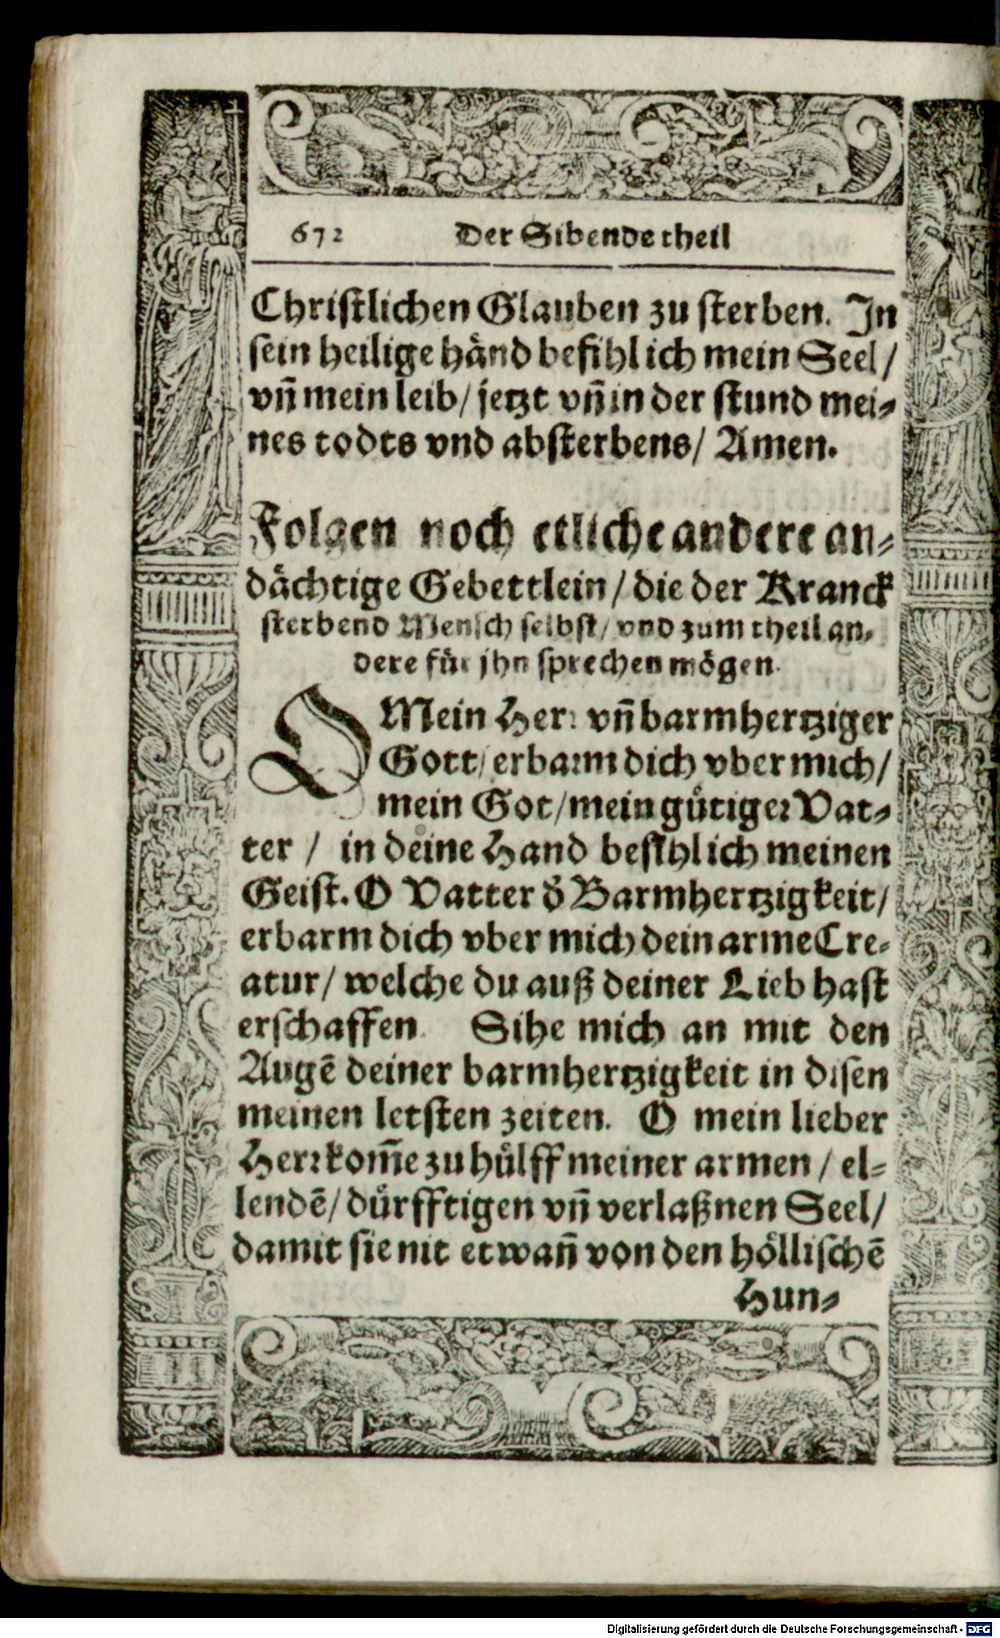 672 Der Sibende theil
Christlichen Glauben zu sterben. In
sein heilige händ befihl ich mein Seel /
vñ mein leib / jetzt vñ in der stund mei-
nes todts vnd absterbens / Amen.
Folgen noch etliche andere an-
dächtige Gebettlein / die der Kranck
sterbend Mensch selbst / vnd zum theil an-
dere für jhn sprechen mögen.
O Mein Herr vñ barmhertziger
Gott / erbarm dich vber mich /
mein Got / mein gütiger Vat-
ter / in deine Hand befihl ich meinen
Geist. O Vatter d̃ Barmhertzigkeit /
erbarm dich vber mich dein arme Cre-
atur / welche du auß deiner Lieb hast
erschaffen. Sihe mich an mit den
Augẽ deiner barmhertzigkeit in disen
meinen letsten zeiten. O mein lieber
Herr kom̃e zu hülff meiner armen / el-
lendẽ / dürfftigen vñ verlaßnen Seel /
damit sie nit etwañ von den höllischẽ
Hun-
Digitalisierung gefördert durch die Deutsche Forschungsgemeinschaft - DFG